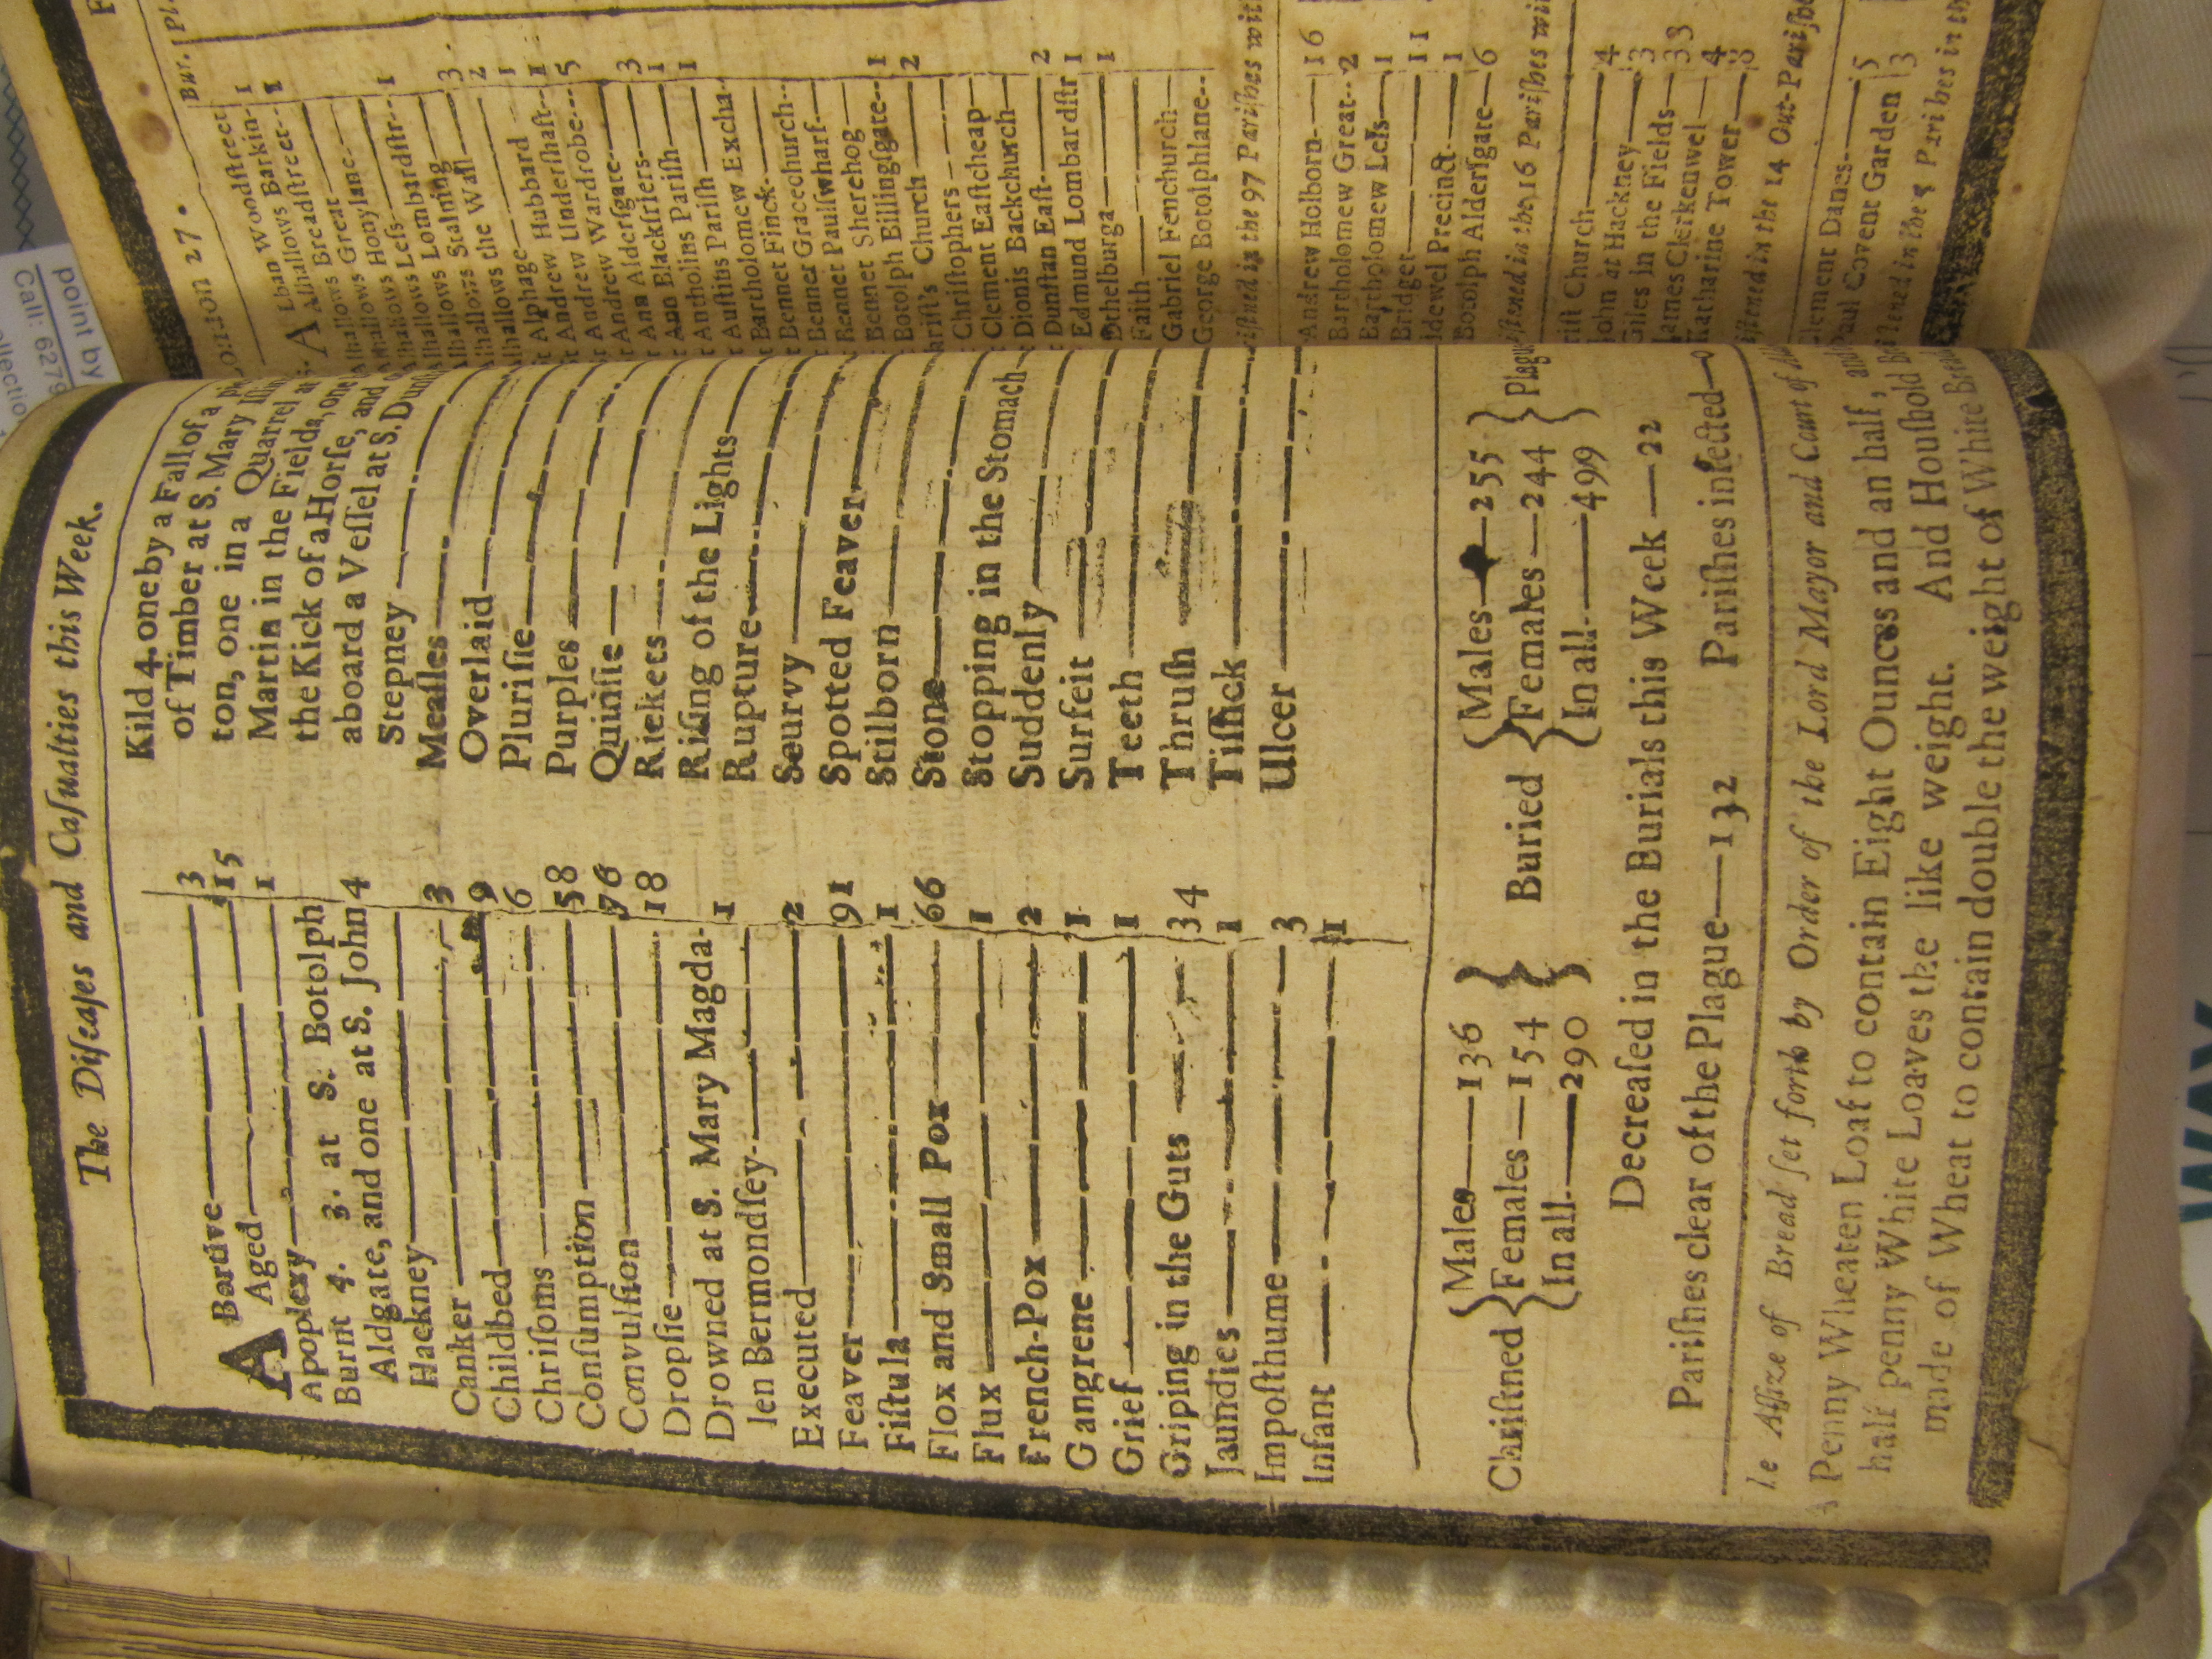 The Diſeaſes and Caſualties this Week.
ABortive 3
Aged 15
Apoplexy 1
Burnt 4. 3. at S. Botolph
Aldgate, and one at S. John 4
Hackney
Canker 3
Childbed 9
Chriſoms 6
Conſumption 58
Convulſion 76
Dropſie 18
Drowned at S. Mary Magda-
len Bermondſey 1
Executed 2
Feaver 91
Fiſtula 1
Flox and Small Pox 66
Flux 1
French-Pox 2
Gangrene 1
Grief 1
Griping in the Guts 34
Jaundies 1
Impoſthume 3
Infant 11
Kild 4. one by a Fall of a
of Timber at S. Mary
ton, one in a Quarrel at
Martin in the Fields, one
the Kick of a Horſe, and
aboard a Veſſel at S. Dun
Stepney
Meaſles
Overlaid
Pluriſie
Purples
Quinſie
Rickets
Riſing of the Lights
Rupture
Scurvy
Spotted Feaver
Stilborn
Stone
Stopping in the Stomach
Suddenly
Surfeit
Teeth
Thruſh
Tiſſick
Ulcer
Chriſtned { Males 136 Females 154 In all 290 } Buried { Males 255 Females 244 In all 499 } Plague
Decreaſed in the Burials this Week 22
Pariſhes clear of the Plague 132 Pariſhes infected 0
Aſſize of Bread ſet forth by Order of the Lord Mayor and Court of
A Penny Wheaten Loaf to contain Eight Ounces and an half, and
half penny White Loaves the like weight. And Houſhold
made of Wheat to contain double the weight of White
27. Bur. Pl.
lban Woodſtreet 1
Alhallows Barkin 1
Alhallows Breadſtreet
lhallows Great
lhallows Honylane
lhallows Leſs 1
lhallows Lombardſtr
lhallows Staining 3
lhallows the Wall 2
Alphage 1
Andrew Hubbard 1
Andrew Underſhaft
Andrew Wardrobe 5
Ann Alderſgate
Ann Blackfriers 3
Antholins Pariſh 1
Auſtins Pariſh 1
Bartholomew Excha
Bennet Finck
Bennet Gracechurch
Bennet Paulſwharf
Bennet Sherehog
Botolph Billingſgate 1
Church 2
Chriſtophers
Clement Eaſtcheap
Dionis Backchurch
Dunſtan Eaſt 2
Edmund Lombardſtr 1
Ethelburga 1
Faith
Gabriel Fenchurch
George Botolphlane
iſtned in the 97 Pariſhes wit
Andrew Holborn 16
Bartholomew Great 2
Bartholomew Leſs 1
Bridget 11
idewel Precinct 1
Botolph Alderſgate 6
iſtned in the 16 Pariſhes wi
riſt Church 4
John at Hackney 3
Giles in the Fields 33
James Clerkenwel 4
Katharine Tower 8
iſtened in the 14 Out-Pariſhe
lement Danes 5
Paul Covent Garden 3
point by
Call: 6279